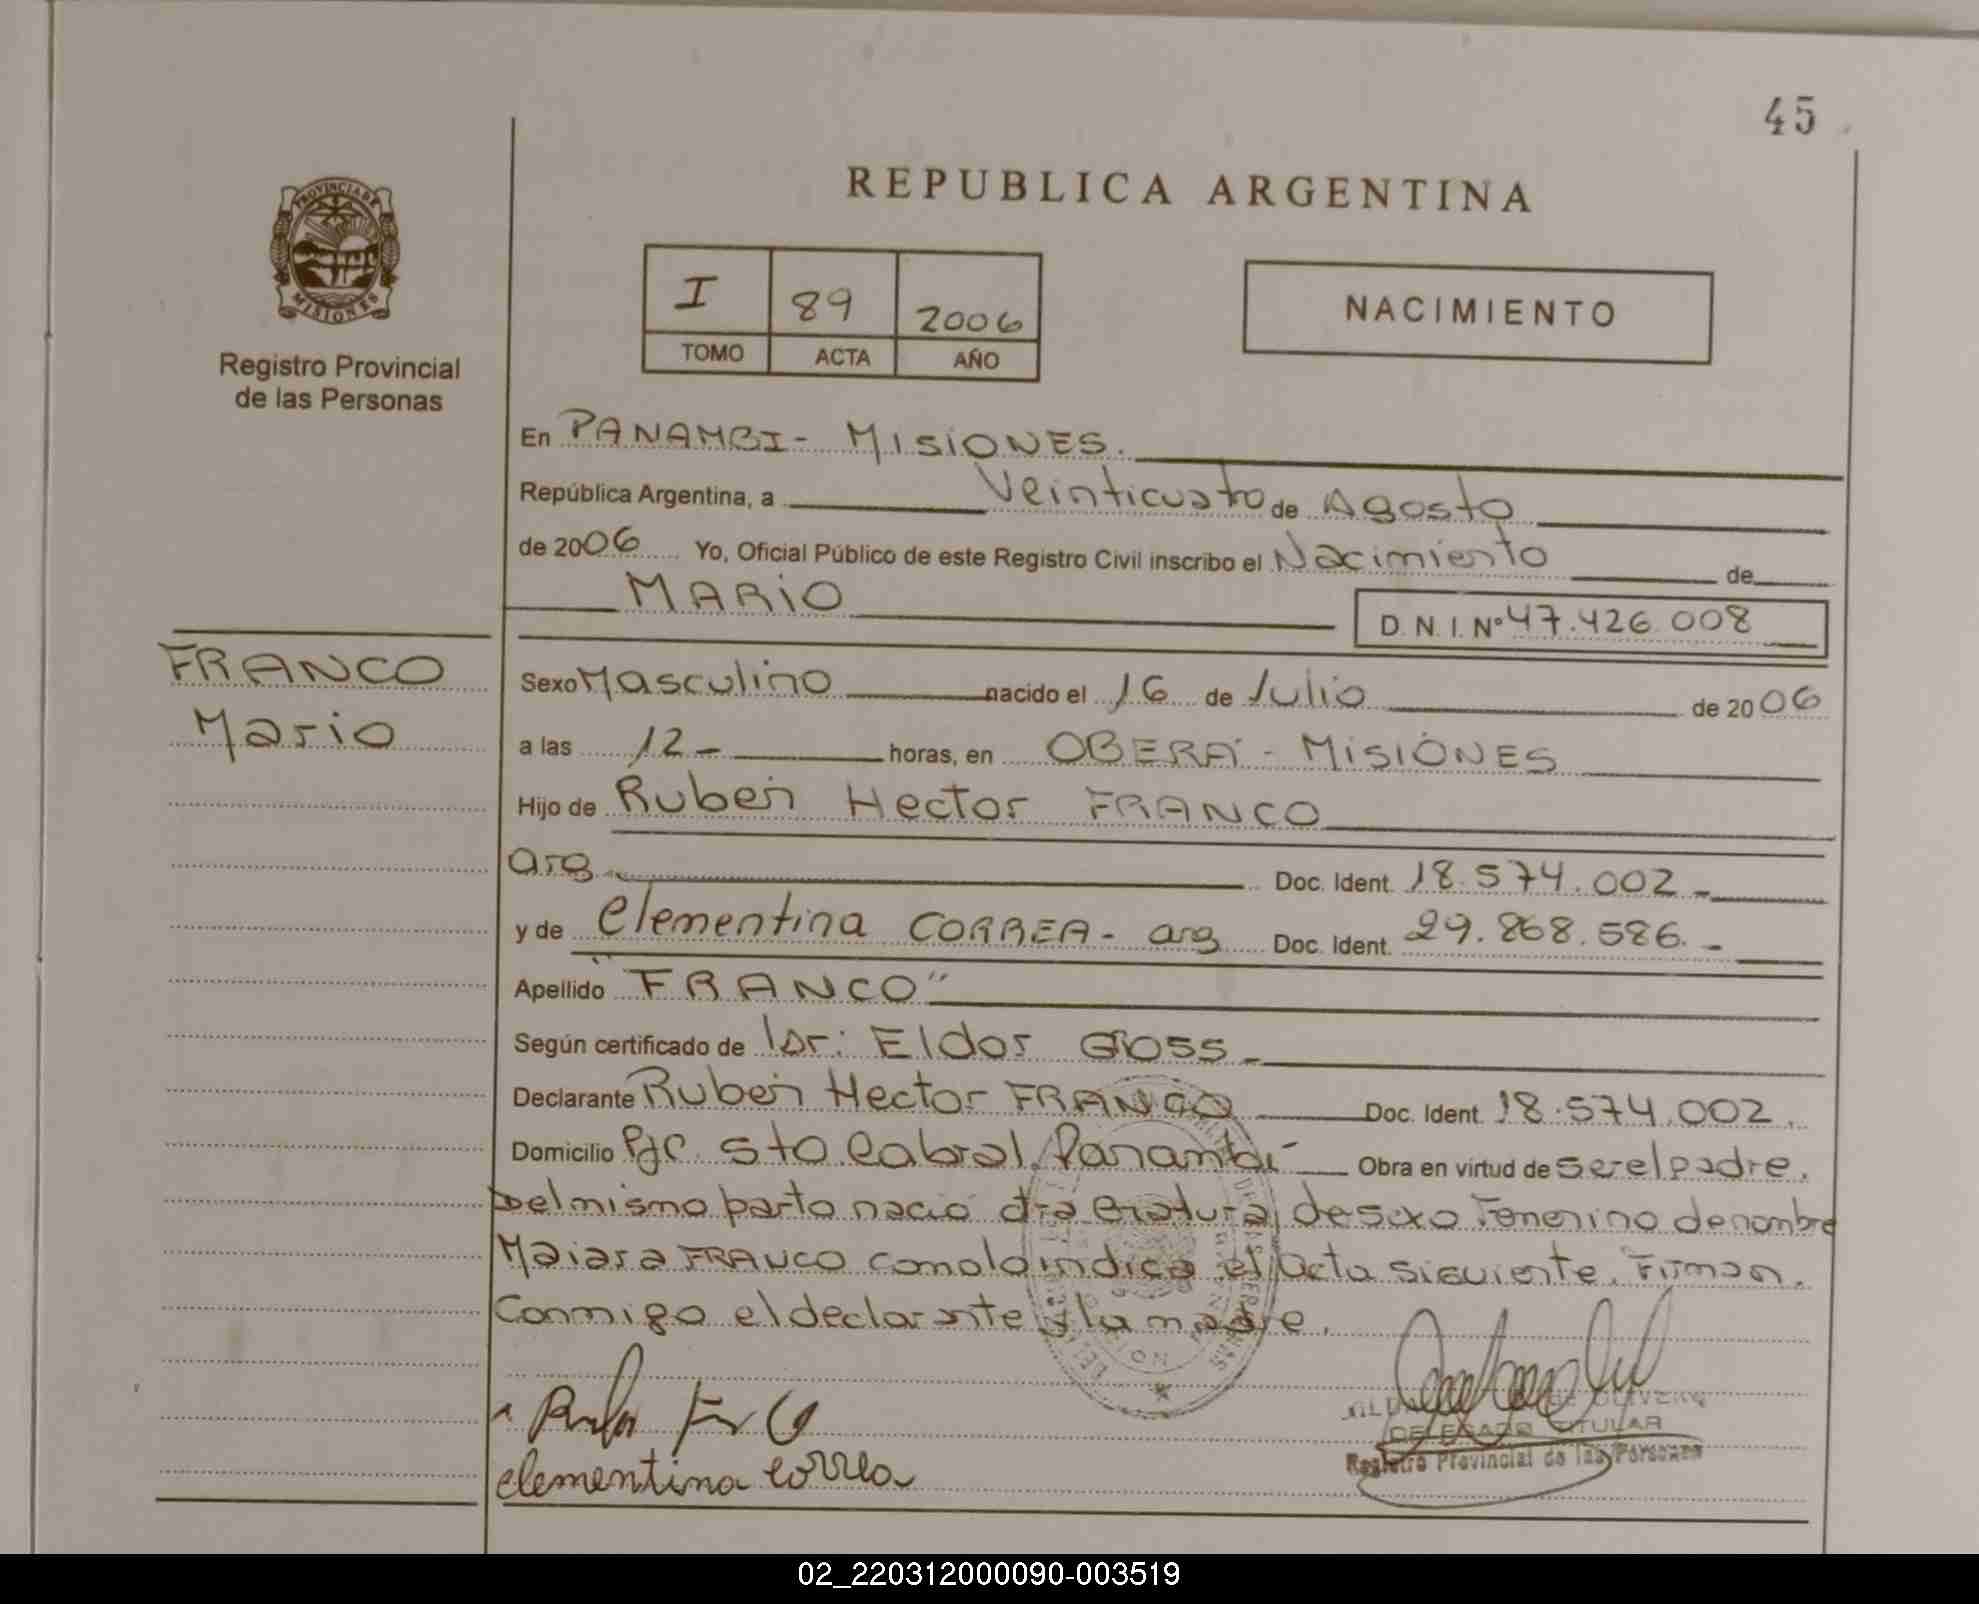 45
REPUBLICA ARGENTINA
PROVINCIA DE
MISIONES
Registro Provincial
de las Personas
I 89 2006
TOMO ACTA AÑO
NACIMIENTO
En PANAMBI - MISIONES.
República Argentina, a Veinticuatro de Agosto
de 2006 Yo, Oficial Público de este Registro Civil inscribo el Nacimiento de
MARIO
D. N. I. Nº 47.426.008
FRANCO
Mario
Sexo Masculino nacido el 16 de Julio de 2006
a las 12 - horas, en OBERÁ - MISIONES
Hijo de Ruben Hector FRANCO
arg. Doc. Ident. 18.574.002 -
y de Clementina CORREA - arg Doc. Ident. 29.868.586. -
Apellido "FRANCO"
Según certificado de Dr: Eldor Gross -
Declarante Ruben Hector FRANCO Doc. Ident. 18.574.002.
Domicilio Pje. Sto Cabral Panambí Obra en virtud de ser el padre.
Del mismo parto nacio otra Criatura, de sexo Femenino de nombre
Maiara FRANCO como lo indica el Acta siguiente. Firman.
Conmigo el declarante y la madre.
clementina correa
DELEGADO TITULAR
Registro Provincial de las Personas
02_220312000090-003519